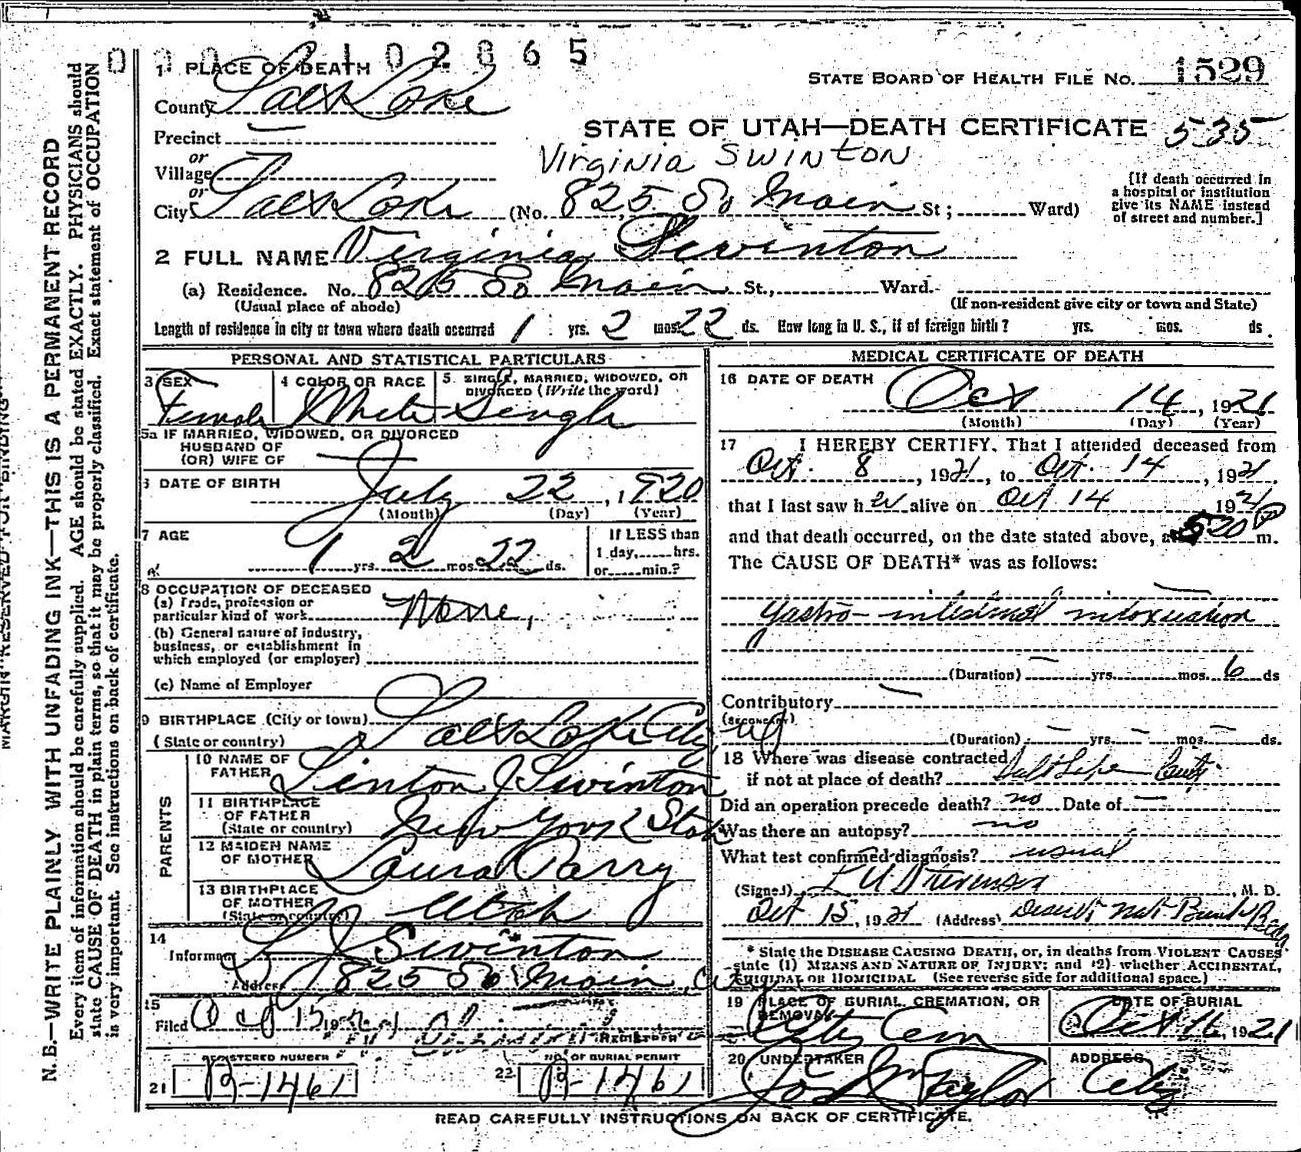 000 102865
1 PLACE OF DEATH
STATE BOARD OF HEALTH FILE No. 1529
County Salt Lake
STATE OF UTAH—DEATH CERTIFICATE 535
Precinct
Virginia SWINTON
or
Village
or
City Salt Lake (No. 825 So Main St; Ward)
[If death occurred in
a hospital or institution
give its NAME instead
of street and number.]
2 FULL NAME Virginia Swinton
(a) Residence. No. 825 So Main St., Ward.
(Usual place of abode) (If non-resident give city or town and State)
Length of residence in city or town where death occurred 1 yrs. 2 mos. 22 ds. How long in U. S., if of foreign birth? yrs. mos. ds
PERSONAL AND STATISTICAL PARTICULARS
3 SEX Female
4 COLOR OR RACE White
5. SINGLE, MARRIED, WIDOWED, OR
DIVORCED (Write the word)
Single
5a IF MARRIED, WIDOWED, OR DIVORCED
HUSBAND OF
(OR) WIFE OF
6 DATE OF BIRTH July 22, 1920
(Month) (Day) (Year)
7 AGE
1 yrs. 2 mos. 22 ds.
If LESS than
1 day, hrs.
or min.?
8 OCCUPATION OF DECEASED
(a) Trade, profession or
particular kind of work None,
(b) General nature of industry,
business, or establishment in
which employed (or employer)
(c) Name of Employer
9 BIRTHPLACE (City or town) Salt Lake City
(State or country)
PARENTS
10 NAME OF
FATHER Linton J Swinton
11 BIRTHPLACE
OF FATHER
(State or country) New York State
12 MAIDEN NAME
OF MOTHER Laura Parry
13 BIRTHPLACE
OF MOTHER
(State or country) Utah
14
Informant L J Swinton
Address 825 So Main, C
15
Filed Oct 15 1921
REGISTRAR
REGISTERED NUMBER
21 B-1461
No. OF BURIAL PERMIT
22 B-1461
MEDICAL CERTIFICATE OF DEATH
16 DATE OF DEATH
Oct 14, 1921
(Month) (Day) (Year)
17 I HEREBY CERTIFY, That I attended deceased from
Oct. 8, 1921, to Oct. 14, 1921,
that I last saw her alive on Oct 14 1921
and that death occurred, on the date stated above, at 520 P m.
The CAUSE OF DEATH* was as follows:
Gastro-intestinal intoxication
(Duration) yrs. mos. 6 ds
Contributory
(SECONDARY)
(Duration) yrs mos. ds.
18 Where was disease contracted
if not at place of death? Salt Lake City
Did an operation precede death? no Date of
Was there an autopsy? no
What test confirmed diagnosis? usual
(Signed) Stevenson, M. D.
Oct 15, 1921 (Address) Deseret Nat Bank Bldg
* State the DISEASE CAUSING DEATH, or, in deaths from VIOLENT CAUSES
state (1) MEANS AND NATURE OF INJURY; and (2) whether ACCIDENTAL,
SUICIDAL OR HOMICIDAL (See reverse side for additional space.)
19 PLACE OF BURIAL, CREMATION, OR
REMOVAL
City Cem
DATE OF BURIAL
Oct 16, 1921
20 UNDERTAKER
Jos Wm Taylor
ADDRESS
City
READ CAREFULLY INSTRUCTIONS ON BACK OF CERTIFICATE.
MARGIN RESERVED FOR BINDING
N. B.—WRITE PLAINLY WITH UNFADING INK—THIS IS A PERMANENT RECORD
Every item of information should be carefully supplied. AGE should be stated EXACTLY. PHYSICIANS should
state CAUSE OF DEATH in plain terms, so that it may be properly classified. Exact statement of OCCUPATION
is very important. See instructions on back of certificate.